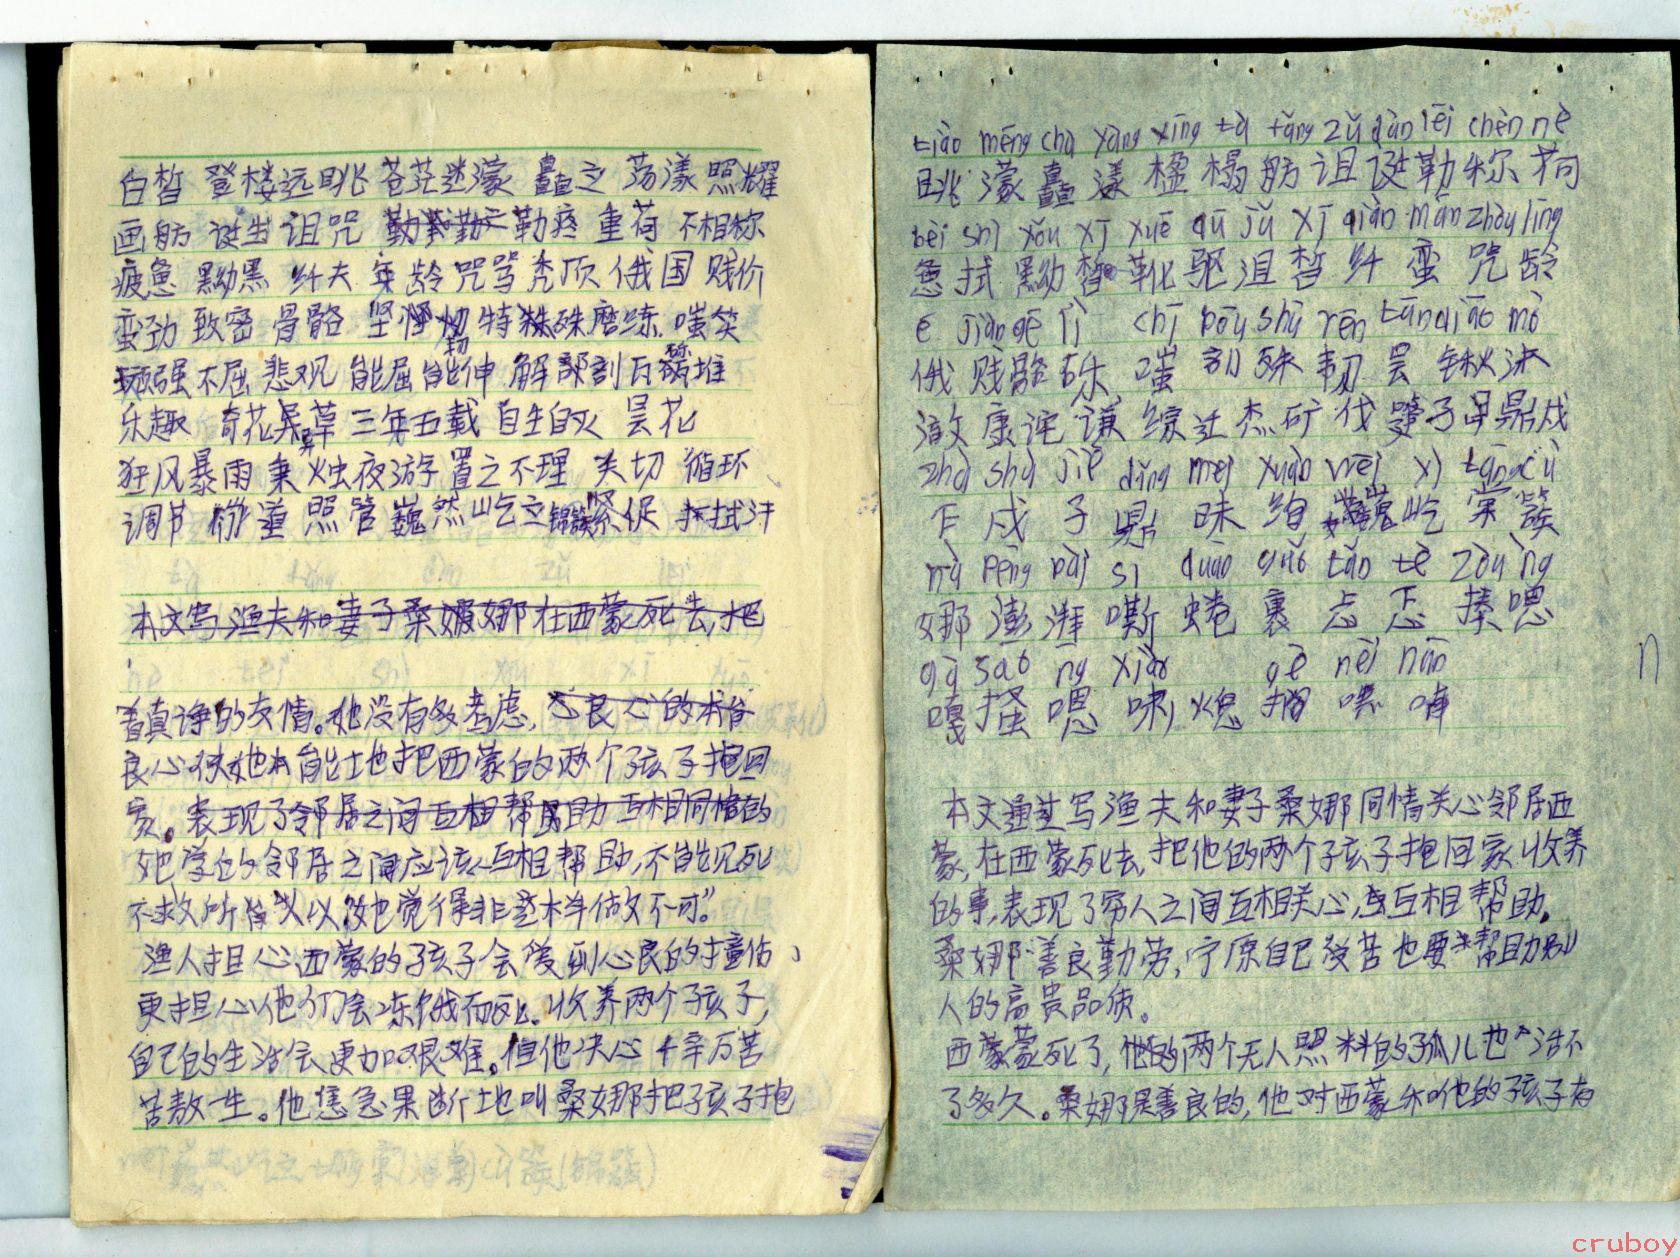 白皙 登楼远眺 苍茫迷濛 矗立 荡漾 照耀
画舫 诞生 诅咒 勒 勒疼 重荷 不相称
疲惫 黝黑 纤夫 年龄 咒骂 秃顶 俄国 贱价
蛮劲 致密 骨骼 坚韧 特殊 磨练 嗤笑
顽强不屈 悲观 能屈能伸 解剖 瓦砾堆
乐趣 奇花异草 三年五载 自生自灭 昙花
狂风暴雨 秉烛夜游 置之不理 关切 循环
调节 照管 巍然屹立 锦簇 紧促 拭汗
本文写渔夫和妻子桑娜在西蒙死去,把
着真诤的友情。她没有多考虑,良心的
良心使她本能地把西蒙的两个孩子抱回
家。表现了邻居之间互相帮助 互相同
她觉的邻居之间应该互相帮助,不能见死
不救所以她觉得非这样做不可。”
渔人担心西蒙的孩子会受到心良的撞伤、
更担心他们会冻饿而死。收养两个孩子,
自己的生活会更加艰难。但他决心千辛万苦
苦熬一生。他焦急果断地叫桑娜把孩子抱
tiào méng chù yàng yíng tà fǎng zǔ dàn lēi chèn hè
眺 濛 矗 漾 楹 榻 舫 诅 诞 勒 称 荷
bèi shì yǒu xī xuē qū jǔ xī qiàn mán zhòu líng
惫 拭 黝 皙 靴 驱 沮 皙 纤 蛮 咒 龄
é jiàn gé lì chī pōu shū rèn tán qiāo mò
俄 贱 骼 砾 嗤 剖 殊 韧 昙 锹 沫
激 康 诧 谦 综 迁 杰 矿 伐 孑 鼎 戍
zhà shù jié dǐng mèi xuàn wēi yì táng cù
下 戍 孑 鼎 昧 绚 巍 屹 棠 簇
nà pēng pài sī quán guǒ tǎn tè zòu ǹg
娜 澎 湃 嘶 蜷 裹 忐 忑 揍 嗯
gā sāo ǹg xiào gē hēi nán
嘎 搔 嗯 啸 熄 搁 嘿 喃
本文通过写渔夫和妻子桑娜同情关心邻居西
蒙,在西蒙死去,把他的两个孩子抱回家收养
的事,表现了穷人之间互相关心,互相帮助。
桑娜善良勤劳,宁原自己受苦也要帮助别
人的高贵品质。
西蒙死了,他的两个无人照料的孤儿也活不
了多久。桑娜是善良的,他对西蒙和他的孩子有
n
cruboy